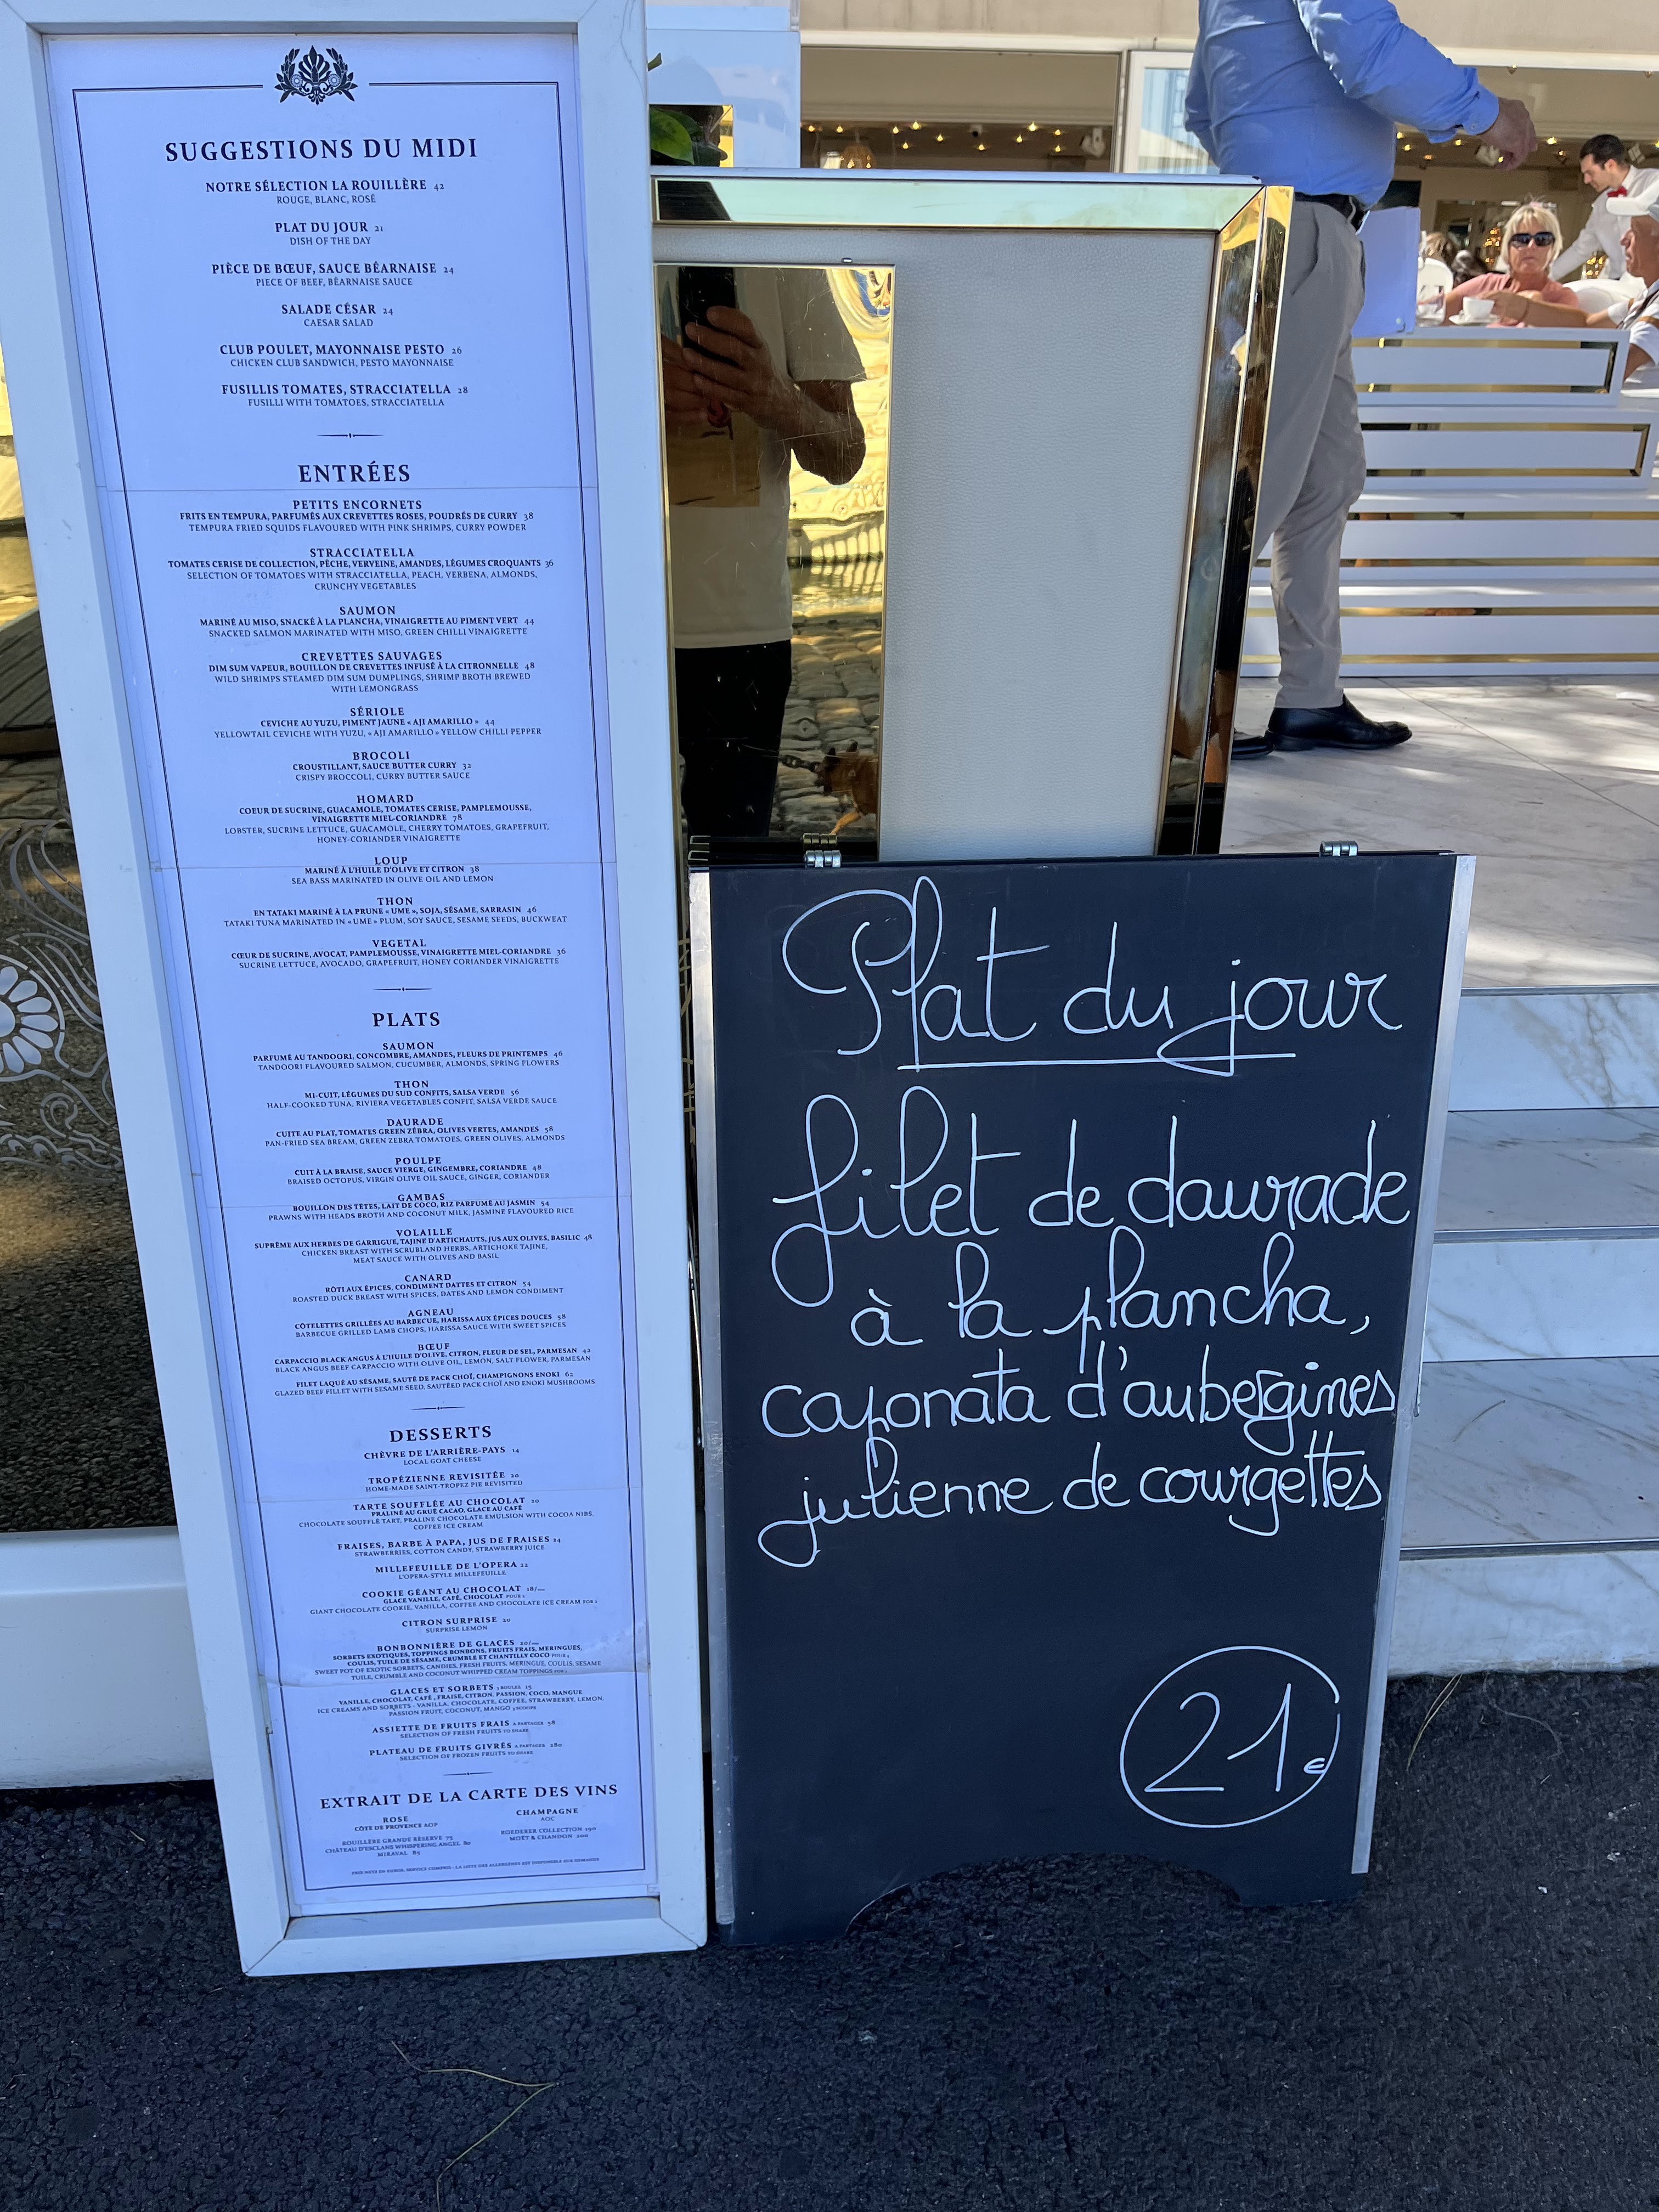 SUGGESTIONS DU MIDI
NOTRE SÉLECTION LA ROUILLÈRE 42
ROUGE, BLANC, ROSÉ
PLAT DU JOUR 21
DISH OF THE DAY
PIÈCE DE BŒUF, SAUCE BÉARNAISE 24
PIECE OF BEEF, BÉARNAISE SAUCE
SALADE CÉSAR 24
CAESAR SALAD
CLUB POULET, MAYONNAISE PESTO 26
CHICKEN CLUB SANDWICH, PESTO MAYONNAISE
FUSILLIS TOMATES, STRACCIATELLA 28
FUSILLI WITH TOMATOES, STRACCIATELLA
ENTRÉES
PETITS ENCORNETS
FRITS EN TEMPURA, PARFUMÉS AUX CREVETTES ROSES, POUDRÉS DE CURRY 38
TEMPURA FRIED SQUIDS FLAVOURED WITH PINK SHRIMPS, CURRY POWDER
STRACCIATELLA
TOMATES CERISE DE COLLECTION, PÊCHE, VERVEINE, AMANDES, LÉGUMES CROQUANTS 36
SELECTION OF TOMATOES WITH STRACCIATELLA, PEACH, VERBENA, ALMONDS,
CRUNCHY VEGETABLES
SAUMON
MARINÉ AU MISO, SNACKÉ À LA PLANCHA, VINAIGRETTE AU PIMENT VERT 44
SNACKED SALMON MARINATED WITH MISO, GREEN CHILLI VINAIGRETTE
CREVETTES SAUVAGES
DIM SUM VAPEUR, BOUILLON DE CREVETTES INFUSÉ À LA CITRONNELLE 48
WILD SHRIMPS STEAMED DIM SUM DUMPLINGS, SHRIMP BROTH BREWED
WITH LEMONGRASS
SÉRIOLE
CEVICHE AU YUZU, PIMENT JAUNE « AJI AMARILLO » 44
YELLOWTAIL CEVICHE WITH YUZU, « AJI AMARILLO » YELLOW CHILLI PEPPER
BROCOLI
CROUSTILLANT, SAUCE BUTTER CURRY 32
CRISPY BROCCOLI, CURRY BUTTER SAUCE
HOMARD
COEUR DE SUCRINE, GUACAMOLE, TOMATES CERISE, PAMPLEMOUSSE,
VINAIGRETTE MIEL-CORIANDRE 78
LOBSTER, SUCRINE LETTUCE, GUACAMOLE, CHERRY TOMATOES, GRAPEFRUIT,
HONEY-CORIANDER VINAIGRETTE
LOUP
MARINÉ À L'HUILE D'OLIVE ET CITRON 38
SEA BASS MARINATED IN OLIVE OIL AND LEMON
THON
EN TATAKI MARINÉ À LA PRUNE « UME », SOJA, SÉSAME, SARRASIN 46
TATAKI TUNA MARINATED IN « UME » PLUM, SOY SAUCE, SESAME SEEDS, BUCKWEAT
VEGETAL
CŒUR DE SUCRINE, AVOCAT, PAMPLEMOUSSE, VINAIGRETTE MIEL-CORIANDRE 36
SUCRINE LETTUCE, AVOCADO, GRAPEFRUIT, HONEY CORIANDER VINAIGRETTE
PLATS
SAUMON
PARFUMÉ AU TANDOORI, CONCOMBRE, AMANDES, FLEURS DE PRINTEMPS 46
TANDOORI FLAVOURED SALMON, CUCUMBER, ALMONDS, SPRING FLOWERS
THON
MI-CUIT, LÉGUMES DU SUD CONFITS, SALSA VERDE 56
HALF-COOKED TUNA, RIVIERA VEGETABLES CONFIT, SALSA VERDE SAUCE
DAURADE
CUITE AU PLAT, TOMATES GREEN ZÉBRA, OLIVES VERTES, AMANDES 58
PAN-FRIED SEA BREAM, GREEN ZEBRA TOMATOES, GREEN OLIVES, ALMONDS
POULPE
CUIT À LA BRAISE, SAUCE VIERGE, GINGEMBRE, CORIANDRE 48
BRAISED OCTOPUS, VIRGIN OLIVE OIL SAUCE, GINGER, CORIANDER
GAMBAS
BOUILLON DES TÊTES, LAIT DE COCO, RIZ PARFUMÉ AU JASMIN 54
PRAWNS WITH HEADS BROTH AND COCONUT MILK, JASMINE FLAVOURED RICE
VOLAILLE
SUPRÊME AUX HERBES DE GARRIGUE, TAJINE D'ARTICHAUTS, JUS AUX OLIVES, BASILIC 48
CHICKEN BREAST WITH SCRUBLAND HERBS, ARTICHOKE TAJINE,
MEAT SAUCE WITH OLIVES AND BASIL
CANARD
RÔTI AUX ÉPICES, CONDIMENT DATTES ET CITRON 54
ROASTED DUCK BREAST WITH SPICES, DATES AND LEMON CONDIMENT
AGNEAU
CÔTELETTES GRILLÉES AU BARBECUE, HARISSA AUX ÉPICES DOUCES 58
BARBECUE GRILLED LAMB CHOPS, HARISSA SAUCE WITH SWEET SPICES
BŒUF
CARPACCIO BLACK ANGUS À L'HUILE D'OLIVE, CITRON, FLEUR DE SEL, PARMESAN 42
BLACK ANGUS BEEF CARPACCIO WITH OLIVE OIL, LEMON, SALT FLOWER, PARMESAN
FILET LAQUÉ AU SÉSAME, SAUTÉ DE PACK CHOÏ, CHAMPIGNONS ENOKI 62
GLAZED BEEF FILLET WITH SESAME SEED, SAUTÉED PACK CHOÏ AND ENOKI MUSHROOMS
DESSERTS
CHÈVRE DE L'ARRIÈRE-PAYS 14
LOCAL GOAT CHEESE
TROPÉZIENNE REVISITÉE 20
HOME-MADE SAINT-TROPEZ PIE REVISITED
TARTE SOUFFLÉE AU CHOCOLAT 20
PRALINÉ AU GRUÉ CACAO, GLACE AU CAFÉ
CHOCOLATE SOUFFLÉ TART, PRALINE CHOCOLATE EMULSION WITH COCOA NIBS,
COFFEE ICE CREAM
FRAISES, BARBE À PAPA, JUS DE FRAISES 24
STRAWBERRIES, COTTON CANDY, STRAWBERRY JUICE
MILLEFEUILLE DE L'OPERA 22
L'OPERA-STYLE MILLEFEUILLE
COOKIE GÉANT AU CHOCOLAT 18/
GLACE VANILLE, CAFÉ, CHOCOLAT POUR
GIANT CHOCOLATE COOKIE, VANILLA, COFFEE AND CHOCOLATE ICE CREAM FOR
CITRON SURPRISE 20
SURPRISE LEMON
BONBONNIÈRE DE GLACES 20/
SORBETS EXOTIQUES, TOPPINGS BONBONS, FRUITS FRAIS, MERINGUES,
COULIS, TUILE DE SÉSAME, CRUMBLE ET CHANTILLY COCO POUR
SWEET POT OF EXOTIC SORBETS, CANDIES, FRESH FRUITS, MERINGUE, COULIS, SESAME
TUILE, CRUMBLE AND COCONUT WHIPPED CREAM TOPPINGS FOR
GLACES ET SORBETS 3 BOULES 15
VANILLE, CHOCOLAT, CAFÉ, FRAISE, CITRON, PASSION, COCO, MANGUE
ICE CREAMS AND SORBETS - VANILLA, CHOCOLATE, COFFEE, STRAWBERRY, LEMON,
PASSION FRUIT, COCONUT, MANGO 3 SCOOPS
ASSIETTE DE FRUITS FRAIS À PARTAGER 58
SELECTION OF FRESH FRUITS TO SHARE
PLATEAU DE FRUITS GIVRÉS À PARTAGER 280
SELECTION OF FROZEN FRUITS TO SHARE
EXTRAIT DE LA CARTE DES VINS
ROSE
CÔTE DE PROVENCE AOP
ROUILLÈRE GRANDE RÉSERVE 75
CHÂTEAU D'ESCLANS WHISPERING ANGEL 80
MIRAVAL 85
CHAMPAGNE
AOC
ROEDERER COLLECTION 190
MOËT & CHANDON 200
PRIX NETS EN EUROS, SERVICE COMPRIS - LA LISTE DES ALLERGÈNES EST DISPONIBLE SUR DEMANDE
Plat du jour
filet de daurade
à la plancha,
caponata d'aubergines
julienne de courgettes
21€